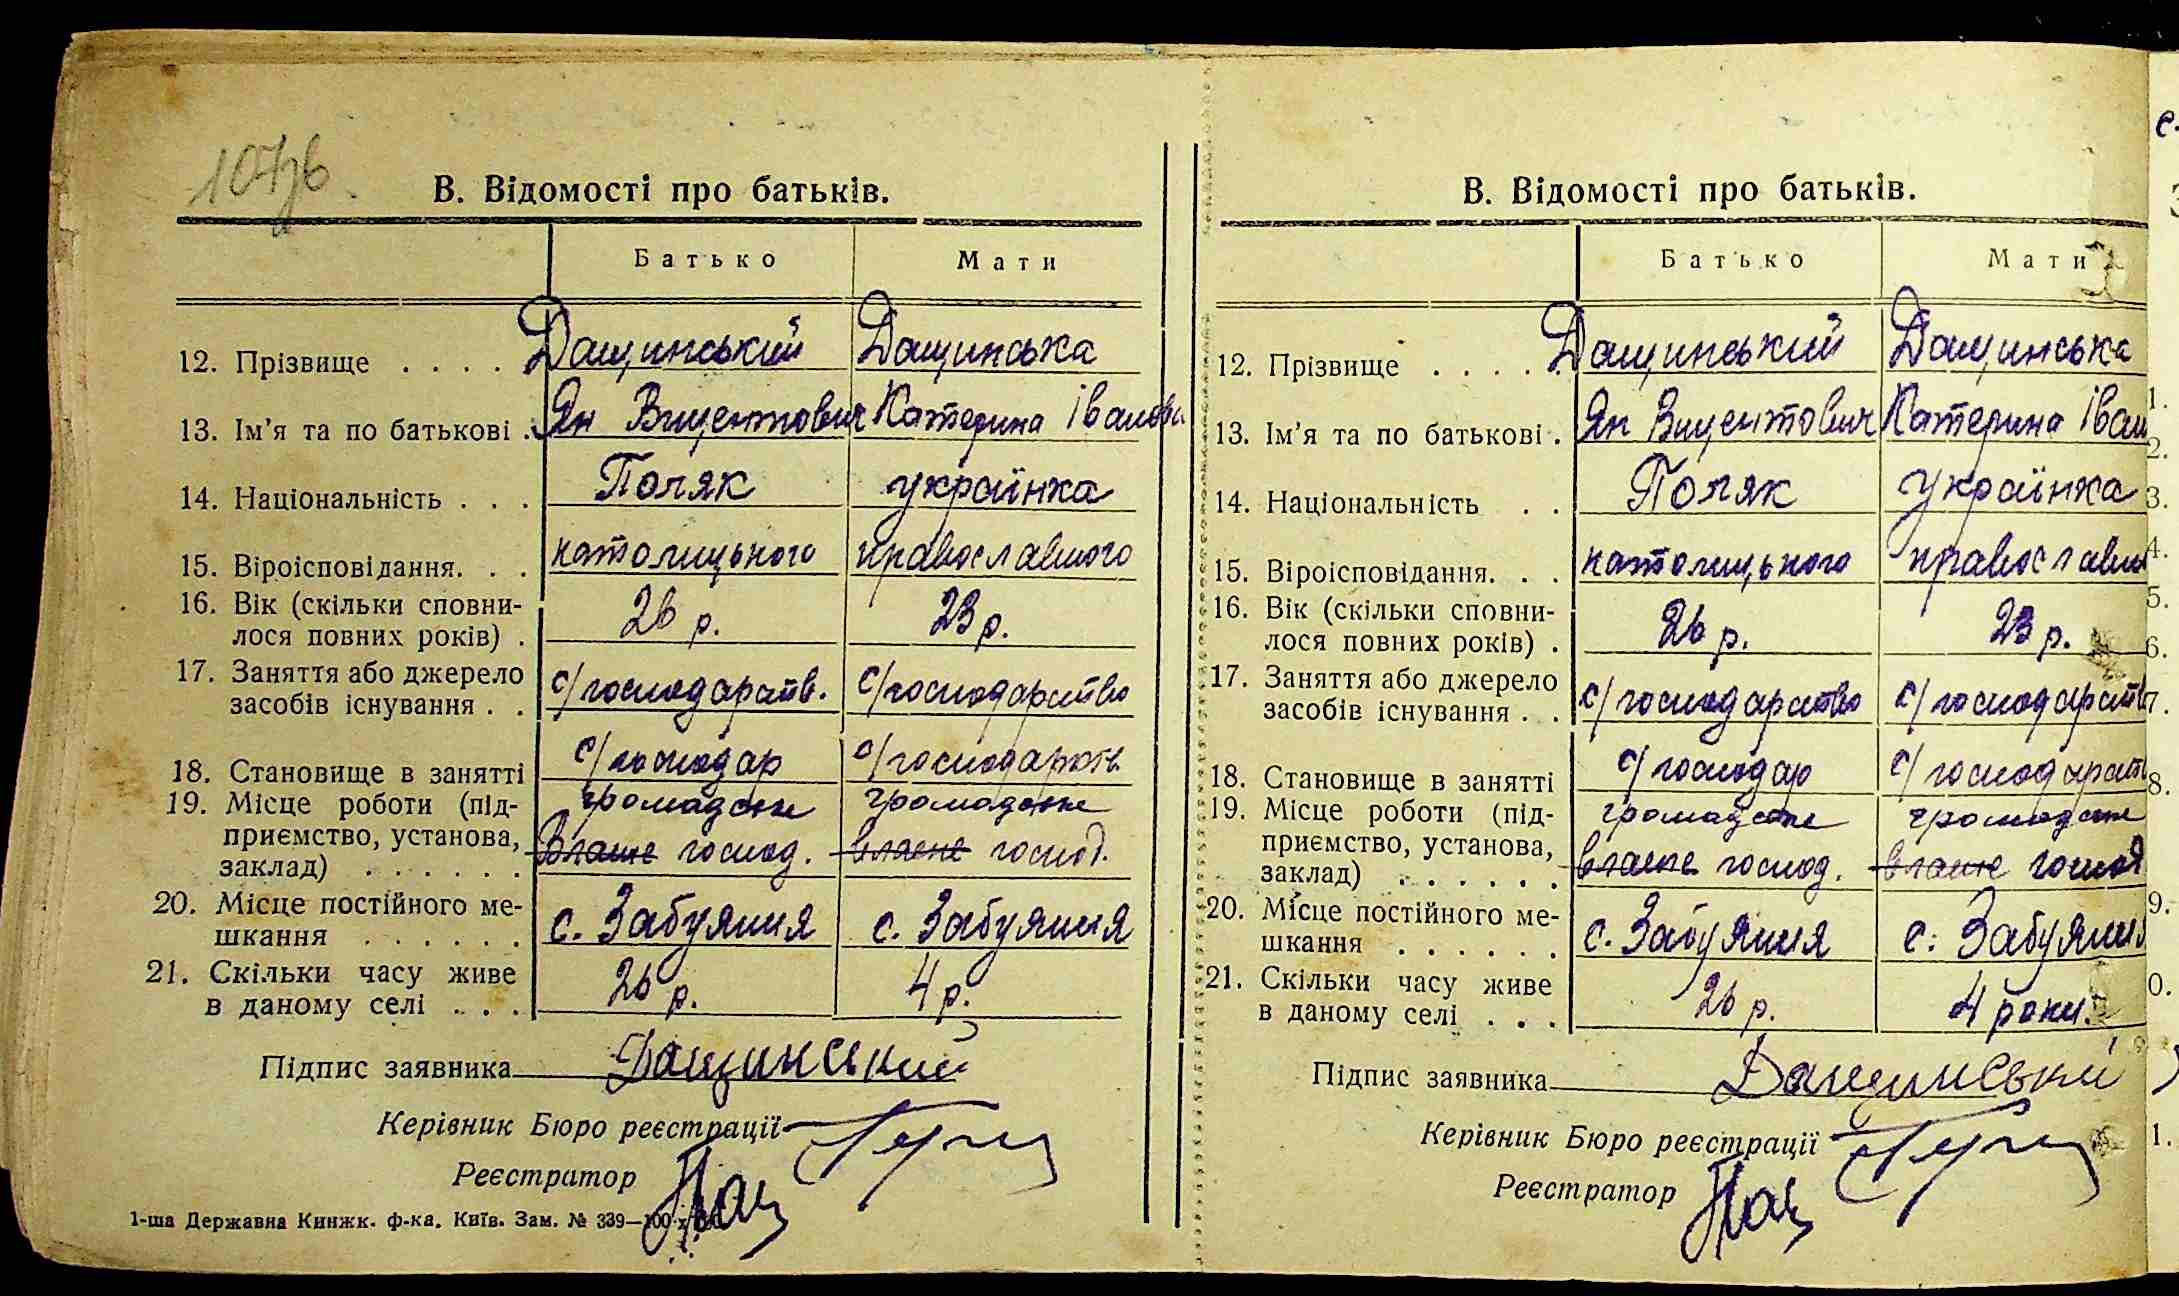 107зв
В. Відомості про батьків.
Батько Мати
12. Прізвище . . . . Дащинський Дащинська
13. Ім'я та по батькові . Ян Вицентович Катерина Іванова
14. Національність . . . Поляк українка
15. Віроісповідання. . . католицького православного
16. Вік (скільки сповни-
лося повних років) . 26 р. 23 р.
17. Заняття або джерело
засобів існування . . с/господарств. с/господарство
18. Становище в занятті с/господар с/господарств
19. Місце роботи (під- громадське громадське
приємство, установа, власне господ. власне господ.
заклад) . . . . . .
20. Місце постійного ме-
шкання . . . . . . с. Забуяння с. Забуяння
21. Скільки часу живе
в даному селі . . . 26 р. 4 р.
Підпис заявника Дащинський
Керівник Бюро реєстрації
Реєстратор
1-ша Державна Кинжк. ф-ка. Київ. Зам. № 339—100
В. Відомості про батьків.
Батько Мати
12. Прізвище . . . . . Дащинський Дащинська
13. Ім'я та по батькові . Ян Вицентович Катерина Іван
14. Національність . . Поляк українка
15. Віроісповідання. . . католицького православн
16. Вік (скільки сповни-
лося повних років) . 26 р. 23 р.
17. Заняття або джерело
засобів існування . . с/господарство с/господарств
18. Становище в занятті с/господар с/господарств
19. Місце роботи (під- громадське громадське
приємство, установа, власне господ. власне господ
заклад) . . . . . .
20. Місце постійного ме-
шкання . . . . . . с. Забуяння с. Забуяння
21. Скільки часу живе
в даному селі . . . 26 р. 4 роки.
Підпис заявника Дащинський
Керівник Бюро реєстрації
Реєстратор